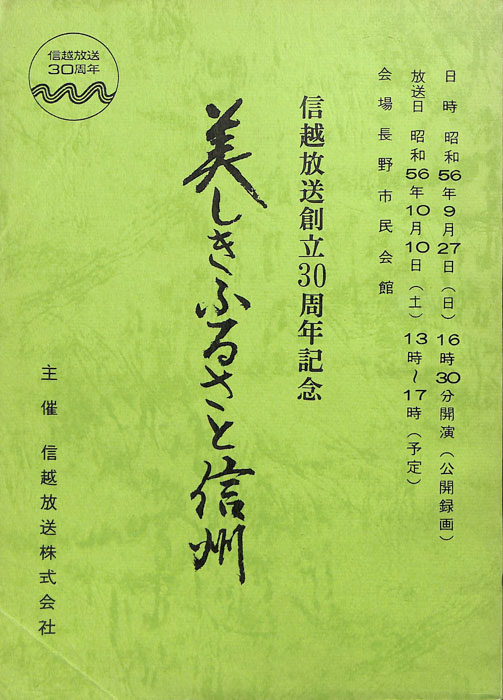 日時 昭和56年9月27日（日）16時30分開演（公開録画）
放送日 昭和56年10月10日（土）13時〜17時（予定）
会場長野市民会館
信越放送創立30周年記念
美しきふるさと信州
主催 信越放送株式会社
信越放送
30周年